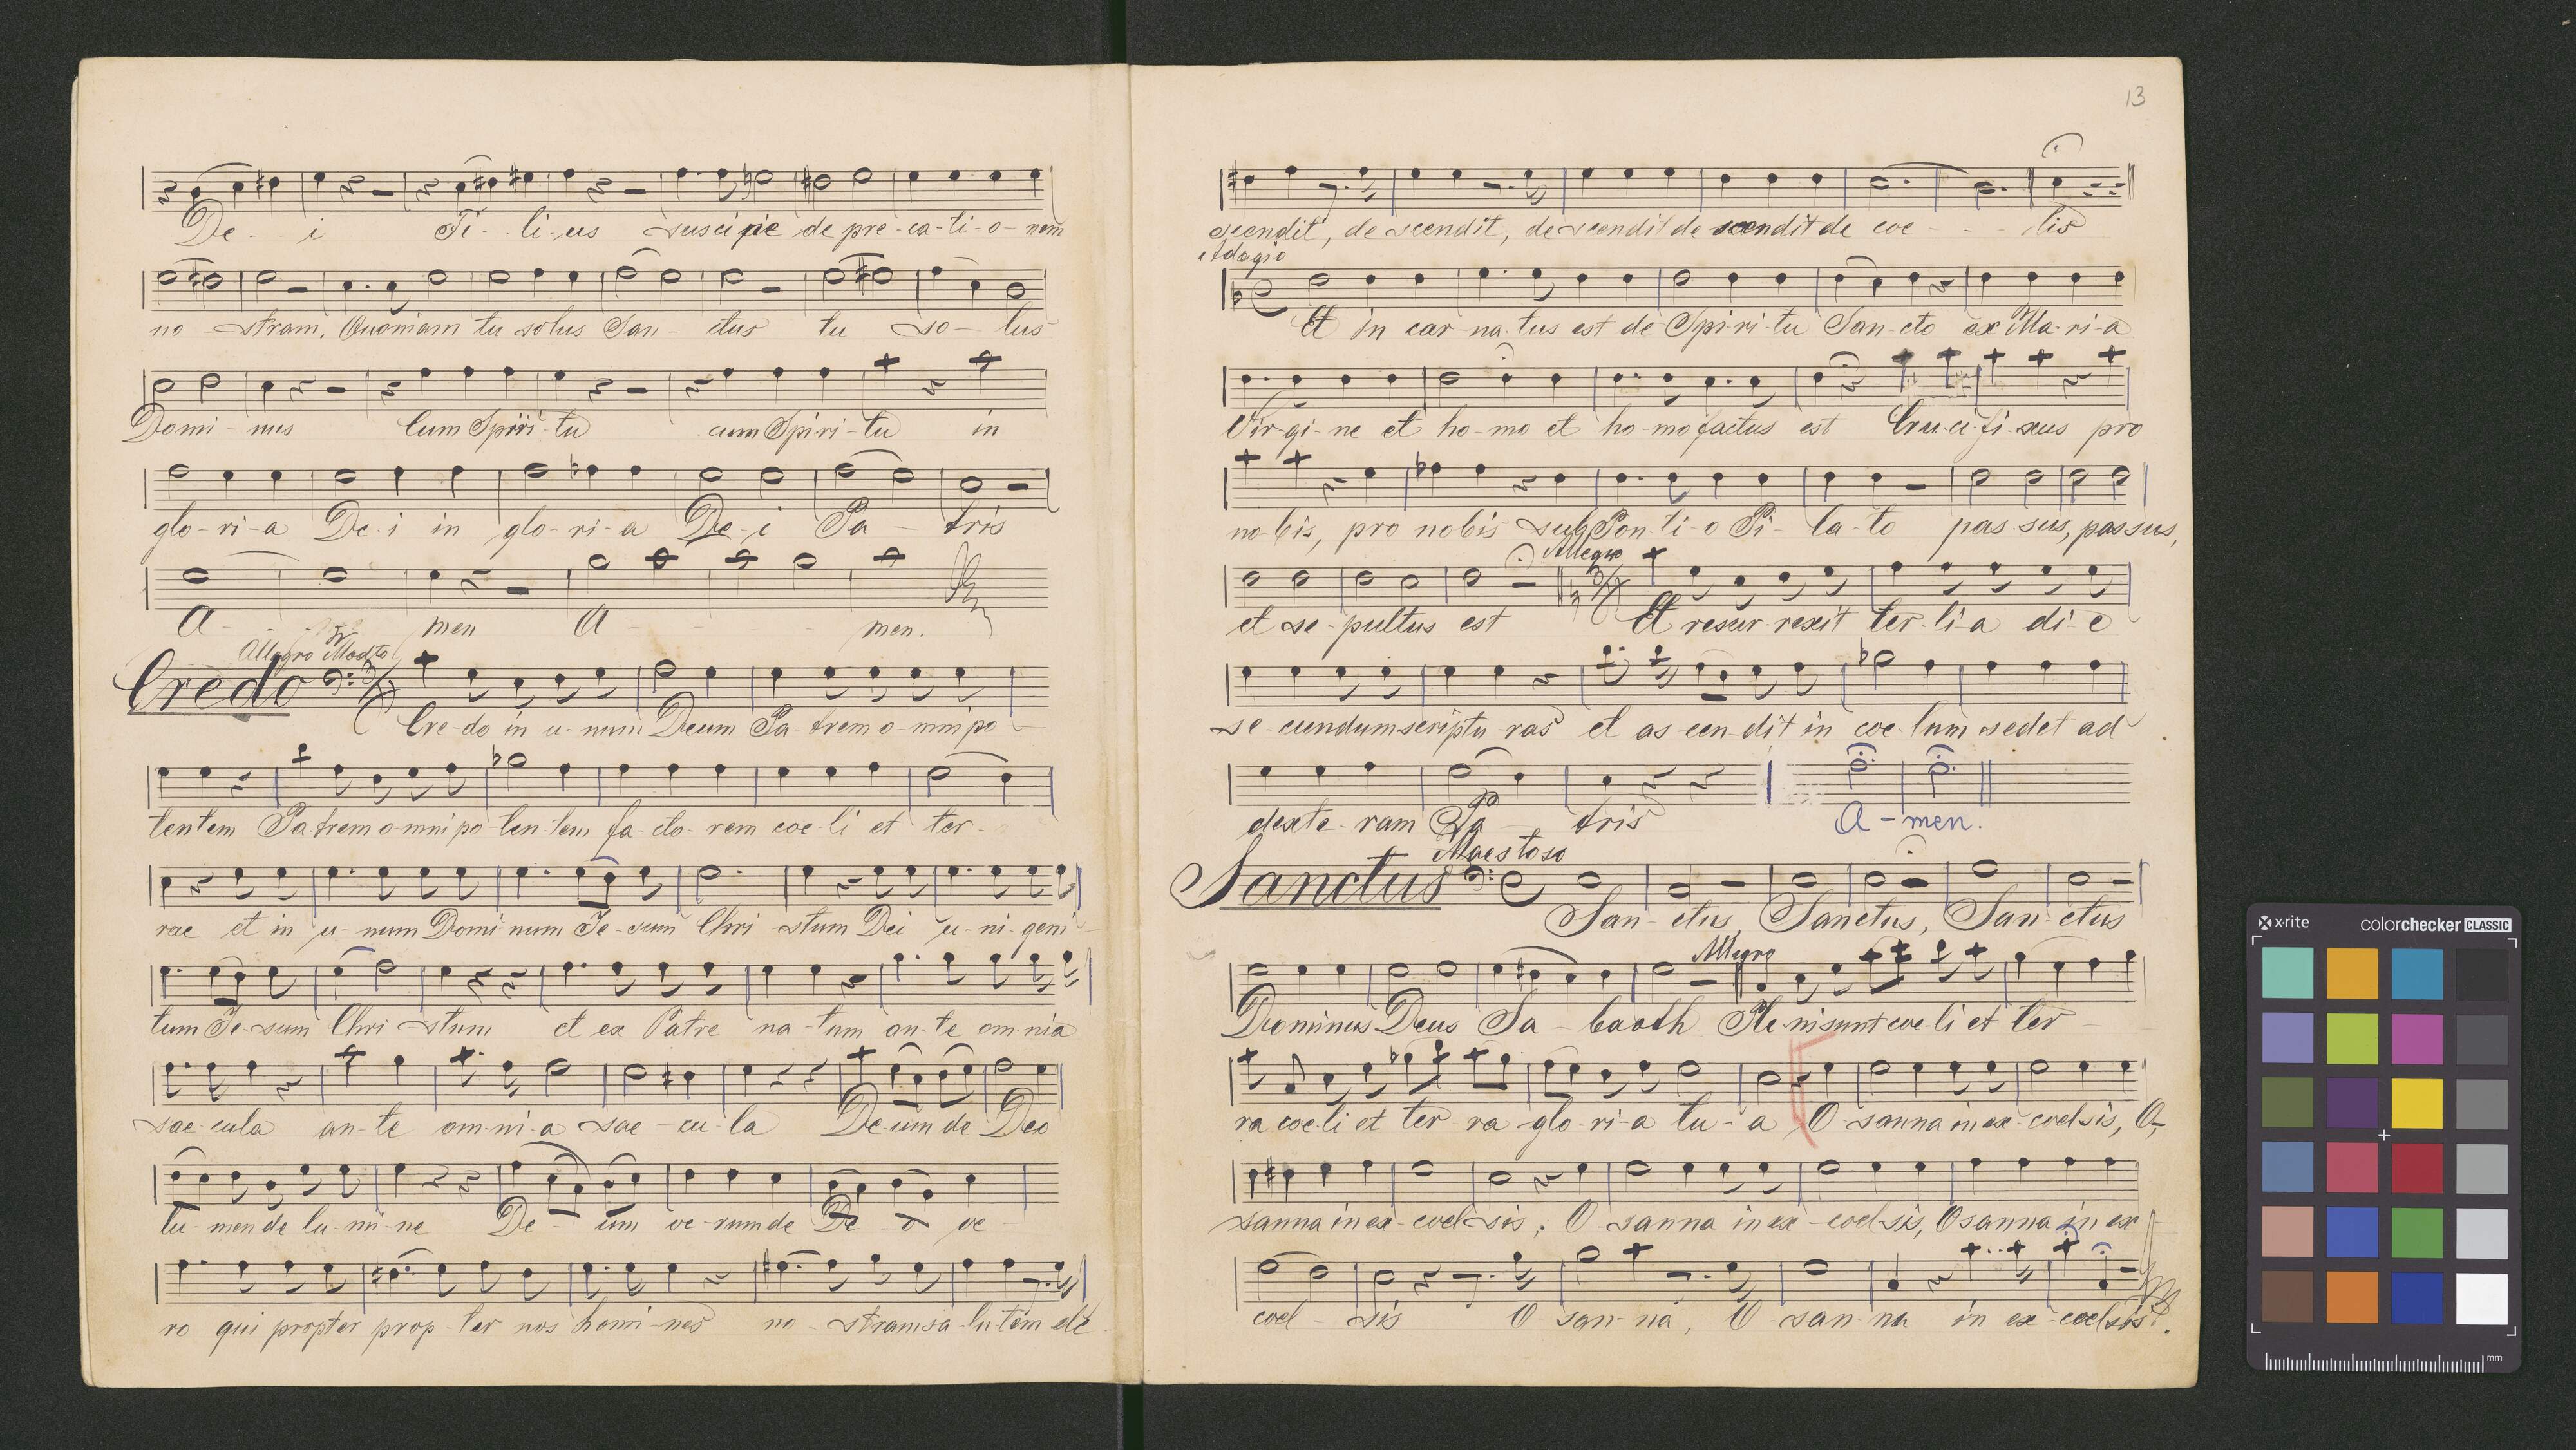 De - - i Fi - li - us suscipie de pre - ca - ti - o - nem
no - stram. Quoniam tu solus San - ctus tu so - tus
Domi - nus Cum Spiri - tu cum Spi - ri - tu in
glo - ri - a De - i in glo - ri - a De - i Pa - tris
A - - men A - - men.
Allegro Modto
Credo
Cre - do in u - num Deum Pa - trem o - mnipo -
tentem Patrem o - mni po - ten - tem fa - cto - rem coe - li et ter -
rae et in u - num Domi - num Je - sum Chri - stum Dei u - ni - geni -
tum Je - sum Chri - stum et ex Patre na - tum an - te om - nia
sae - cula an - te om - ni - a sae - cu - la De - um de Deo
lu - men de lu - mi - ne De - um ve - rum de De - o ve -
ro qui propter prop - ter nos homi - nes no - stram sa - lu - tem de -
13
scendit, de scendit, de scendit de scendit de coe - - - lis
Adagio
Et in car - na - tus est de Spi - ri - tu San - cto ex Ma - ri - a
Vir - gi - ne et ho - mo et ho - mo factus est Cru - ci - fi - xus pro
no - bis, pro nobis sub Pon - ti - o Pi - la - to pas - sus, passus,
Allegro
et se - pultus est Et resur - rexit ter - ti - a di - e
se - cundum scriptu - ras et as - cen - dit in coe - lum sedet ad
dexte - ram Pa - tris A - men.
Maestoso
Sanctus
San - ctus, Sanctus, San - ctus
Allegro
Dominus Deus Sa - baoth Ple - ni sunt coe - li et ter -
ra coe - li et ter ra glo - ri - a tu - a O - sanna in ex - coelsis, O,
sanna in ex - coel - sis, O - sanna in ex - coel sis, Osanna in ex -
coel - sis O - san - na, O - san - na in ex - coelsis.